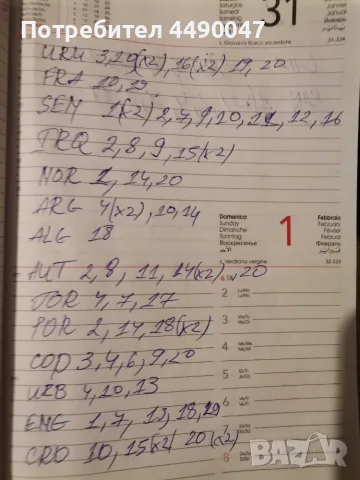 Потребител 4490047
31
Saturday
Samedi
Samstag
Sabado
Суббота
Janvier
Januar
Январь
31-334
s. Giovanni Bosco sacerdote
FRA 10, 19
SEM 1(x2) 2, 7, 9, 10, 11, 12, 16
IRQ 2, 8, 9, 15(x2)
NOR 1, 14, 20
ARG 4(x2), 10, 14
ALG 18
Domenica
Sunday
Dimanche
Sonntag
Domingo
Воскресенье
الأحد
1
Febbraio
February
Février
Februar
Febrero
Февраль
فبراير
s. Verdiana vergine
32-333
AUT 2, 8, 11, 14(x2), 20
JOR 4, 7, 17
POR 2, 14, 18(x2)
COD 3, 4, 6, 9, 20
UZB 4, 10, 13
ENG 1, 7, 13, 18, 19
CRO 10, 15(x2) 20(x2)
2
3
4
5
6
7
8
BAZAR